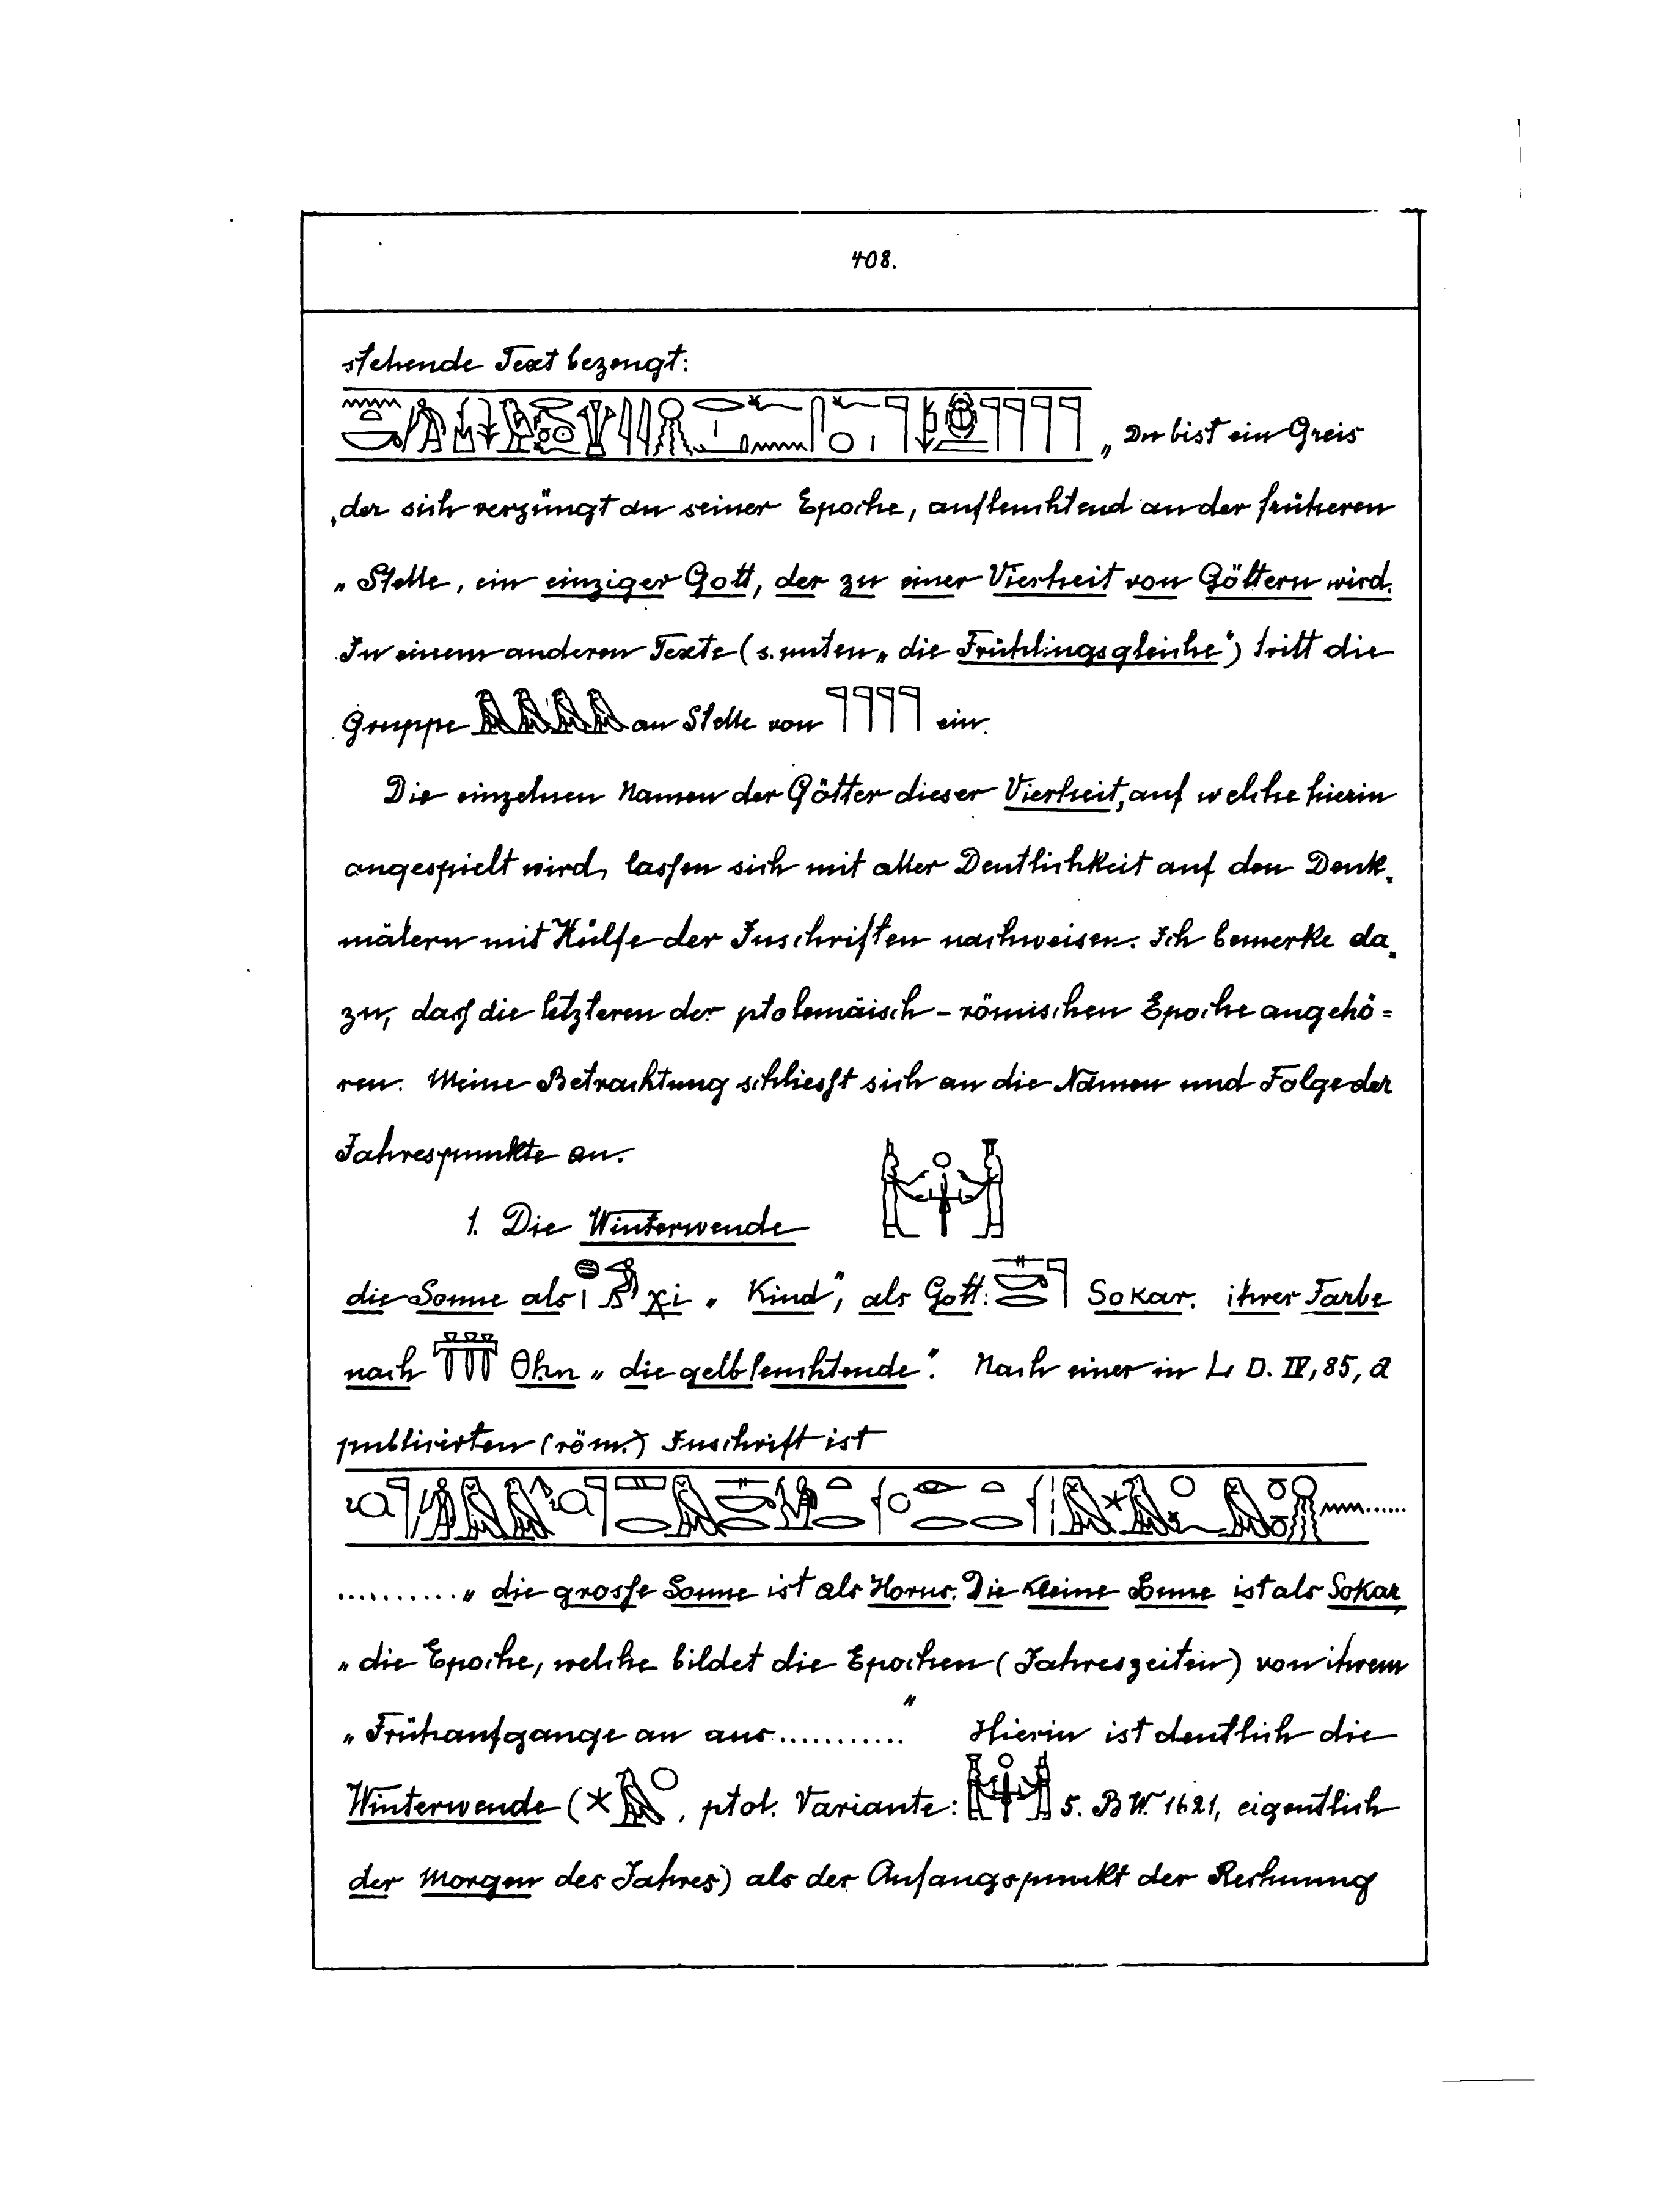 408.
stehende Text bezeugt:
„Du bist ein Greis
„der sich verjüngt an seiner Epoche, aufleuchtend an der früheren
„Stelle, ein einziger Gott, der zu einer Vierheit von Göttern wird.
In einem anderen Texte (s. unten „die Frühlingsgleiche") tritt die
Gruppe an Stelle von ein.
Die einzelnen Namen der Götter dieser Vierheit, auf welche hierin
angespielt wird, lassen sich mit aller Deutlichkeit auf den Denk-
mälern mit Hülfe der Inschriften nachweisen. Ich bemerke da-
zu, daß die letzteren der ptolemäisch-römischen Epoche angehö=
ren. Meine Betrachtung schliesst sich an die Namen und Folge der
Jahrespunkte an.
1. Die Winterwende
die Sonne als χi „Kind", als Gott: Sokar. ihrer Farbe
nach Θhn „die gelb leuchtende". Nach einer in L. D. IV, 85, a
publicirten (röm.) Inschrift ist
.......... „die grosse Sonne ist als Horus. Die kleine Sonne ist als Sokar,
„die Epoche, welche bildet die Epochen (Jahreszeiten) von ihrem
„Frühaufgange an aus..........." Hierin ist deutlich die
Winterwende ( , ptol. Variante: s. B W. 1621, eigentlich
der Morgen des Jahres) als der Anfangspunkt der Rechnung